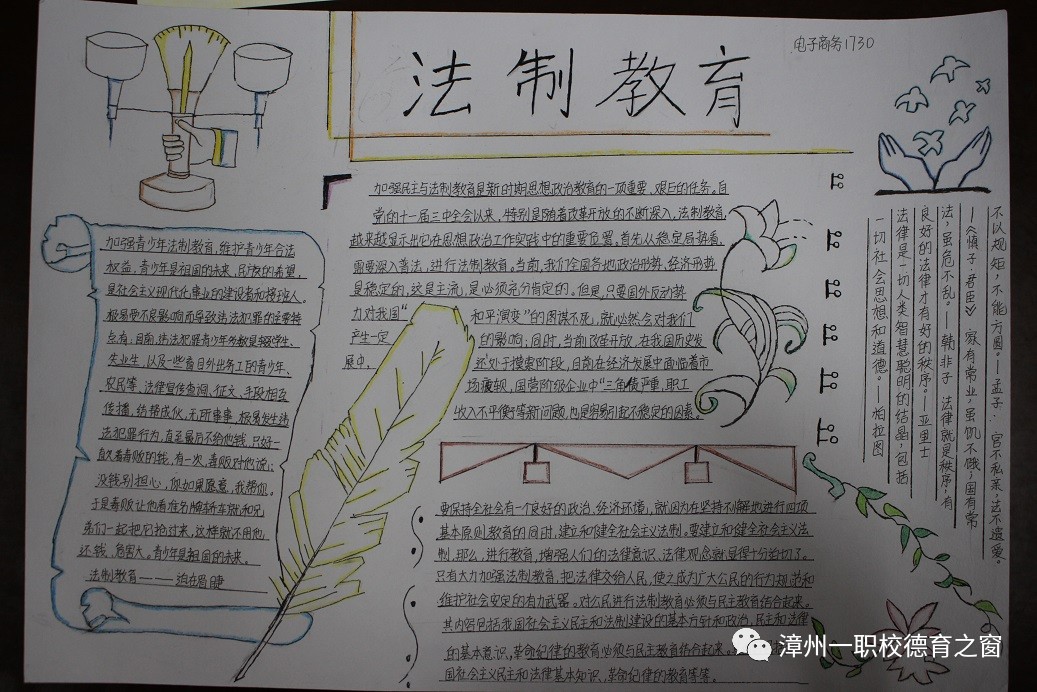 法制教育
电子商务1730
加强青少年法制教育,维护青少年合法
权益,青少年是祖国的未来、民族的希望,
是社会主义现代化事业的建设者和接班人。
极易受不良影响而导致违法犯罪的主要特
点有:目前,违法犯罪青少年多数是辍学生、
失业生,以及一些昔日外出务工的青少年、
农民等、法律宣传查询、征文、手段相互
传播,结帮成伙,无所事事,极易发生违
法犯罪行为,直至最后不给他钱,只好一
直欠着毒贩的钱,有一次,毒贩对他说:
没钱别担心,你如果愿意,我帮你。
于是毒贩让他看准名牌轿车就和兄
弟们一起把它抢过来,这样就不用他
还钱,危害大。青少年是祖国的未来。
法制教育———迫在眉睫
加强民主与法制教育是新时期思想政治教育的一项重要、艰巨的任务。自
党的十一届三中全会以来,特别是随着改革开放的不断深入,法制教育
越来越显示出它在思想政治工作实践中的重要位置。首先从稳定局势看,
需要深入普法,进行法制教育。当前,我们全国各地政治形势、经济形势
是稳定的,这是主流,是必须充分肯定的。但是,只要国外反动势
力对我国“和平演变”的图谋不死,就必然会对我们
产生一定的影响;同时,当前改革开放,在我国历史发
展中,还处于摸索阶段,目前在经济发展中面临着市
场疲软,国营阶级企业中“三角债严重,职工
收入不平衡等新问题,也是容易引起不稳定的因素。
要保持全社会有一个良好的政治、经济环境,就因为在坚持不懈地进行四项
基本原则教育的同时,建立和健全社会主义法制。要建立和健全社会主义法
制,那么,进行教育,增强人们的法律意识、法律观念就显得十分迫切了。
只有大力加强法制教育,把法律交给人民,使之成为广大公民的行为规范和
维护社会安定的有力武器。对公民进行法制教育必须与民主教育结合起来。
其内容包括我国社会主义民主和法制建设的基本方针和政治,民主和法律
的基本意识,革命纪律的教育必须与民主教育结合起来。
国社会主义民主和法律基本知识,革命纪律的教育等等。
不以规矩,不能方圆。—孟子. 宫不私亲,法不遗爱。
—《慎子·君臣》 家有常业,虽饥不饿,国有常
法,虽危不乱。—韩非子 法律就是秩序,有
良好的法律才有好的秩序。—亚里士
法律是一切人类智慧聪明的结晶,包括
一切社会思想和道德。—柏拉图
漳州一职校德育之窗